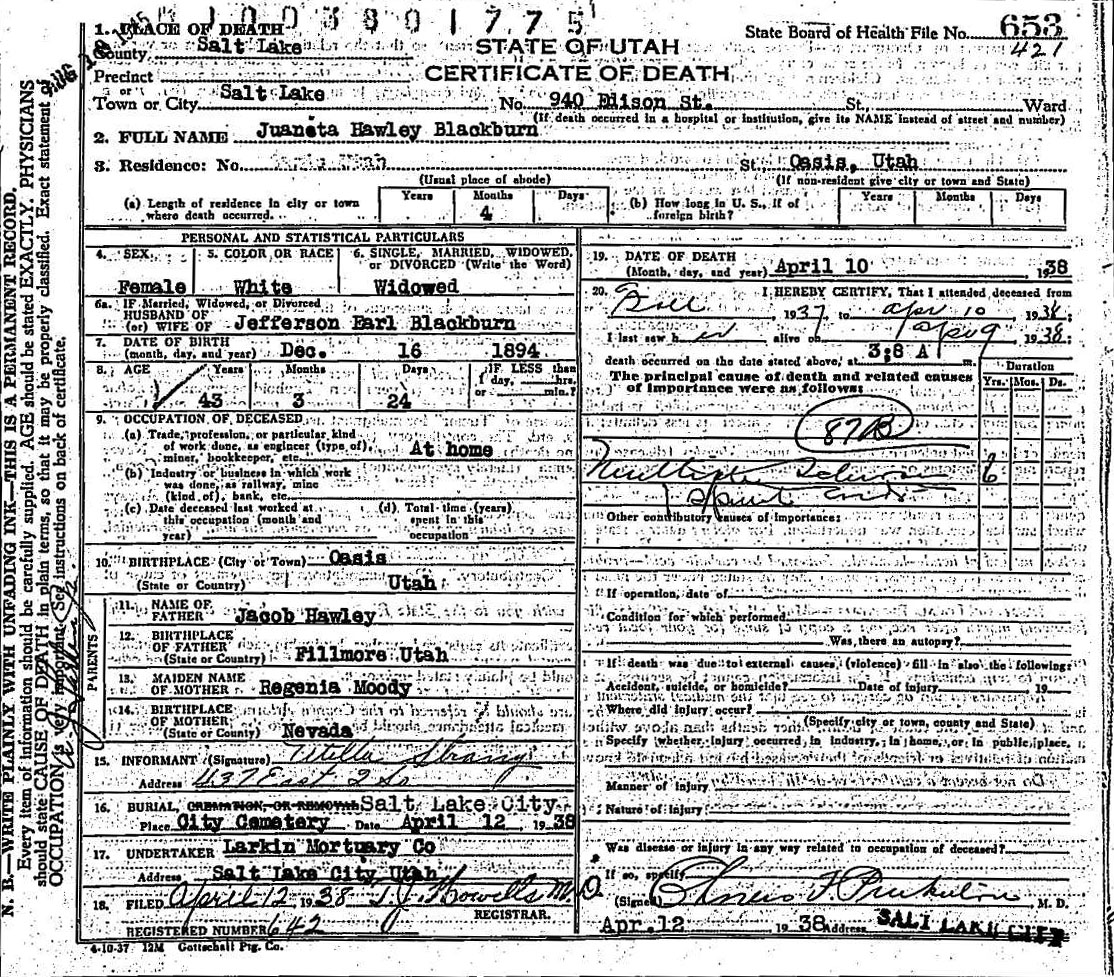 1 0 0 3 8 0 1 7 7 5
1. PLACE OF DEATH
State Board of Health File No. 653
County Salt Lake
STATE OF UTAH
421
Precinct
CERTIFICATE OF DEATH
or
Town or City Salt Lake No. 940 Edison St. St., Ward
(If death occurred in a hospital or institution, give its NAME instead of street and number)
2. FULL NAME Juaneta Hawley Blackburn
3. Residence: No. St., Oasis, Utah
(Usual place of abode) (If non-resident give city or town and State)
(a) Length of residence in city or town where death occurred. Years Months 4 Days
(b) How long in U. S., if of foreign birth? Years Months Days
PERSONAL AND STATISTICAL PARTICULARS
4. SEX 5. COLOR OR RACE 6. SINGLE, MARRIED, WIDOWED, or DIVORCED (Write the Word)
Female White Widowed
6a. IF Married, Widowed, or Divorced
HUSBAND OF
(or) WIFE OF Jefferson Earl Blackburn
7. DATE OF BIRTH
(month, day, and year) Dec. 16 1894
8. AGE Years Months Days IF LESS than
1 day, hrs.
or min.?
43 3 24
9. OCCUPATION OF DECEASED
(a) Trade, profession, or particular kind
of work done, as engineer (type of),
miner, bookkeeper, etc. At home
(b) Industry or business in which work
was done, as railway, mine
(kind of), bank, etc.
(c) Date deceased last worked at
this occupation (month and
year)
(d) Total time (years)
spent in this
occupation
10. BIRTHPLACE (City or Town) Oasis
(State or Country) Utah
PARENTS
11. NAME OF
FATHER Jacob Hawley
12. BIRTHPLACE
OF FATHER
(State or Country) Fillmore Utah
13. MAIDEN NAME
OF MOTHER Regenia Moody
14. BIRTHPLACE
OF MOTHER
(State or Country) Nevada
15. INFORMANT (Signature)
Address 437 East 2 So
16. BURIAL, CREMATION, OR REMOVAL Salt Lake City
Place City Cemetery Date April 12, 1938
17. UNDERTAKER Larkin Mortuary Co
Address Salt Lake City Utah
18. FILED April 12 1938 T. J. Howells M. D.
REGISTRAR.
REGISTERED NUMBER 642
4-10-37 12M Gottschall Ptg. Co.
19. DATE OF DEATH
(Month, day, and year) April 10 1938
20. I HEREBY CERTIFY, That I attended deceased from
1937, to Apr 10, 1938;
I last saw h er alive on Apr 9, 1938;
death occurred on the date stated above, at 3;8 A m.
The principal cause of death and related causes
of importance were as follows:
Duration
Yrs. Mos. Ds.
87B
Multiple Sclerosis 6
Spinal Cord
Other contributory causes of importance:
If operation, date of
Condition for which performed
Was there an autopsy?
If death was due to external causes (violence) fill in also the following:
Accident, suicide, or homicide? Date of injury 19
Where did injury occur?
(Specify city or town, county and State)
Specify whether injury occurred in industry, in home, or in public place.
Manner of injury
Nature of injury
Was disease or injury in any way related to occupation of deceased?
If so, specify
(Signed) M. D.
Apr. 12 1938 Address SALT LAKE CITY
N. B.—WRITE PLAINLY WITH UNFADING INK—THIS IS A PERMANENT RECORD.
Every item of information should be carefully supplied. AGE should be stated EXACTLY. PHYSICIANS
should state CAUSE OF DEATH in plain terms, so that it may be properly classified. Exact statement of
OCCUPATION is very important. See instructions on back of certificate.